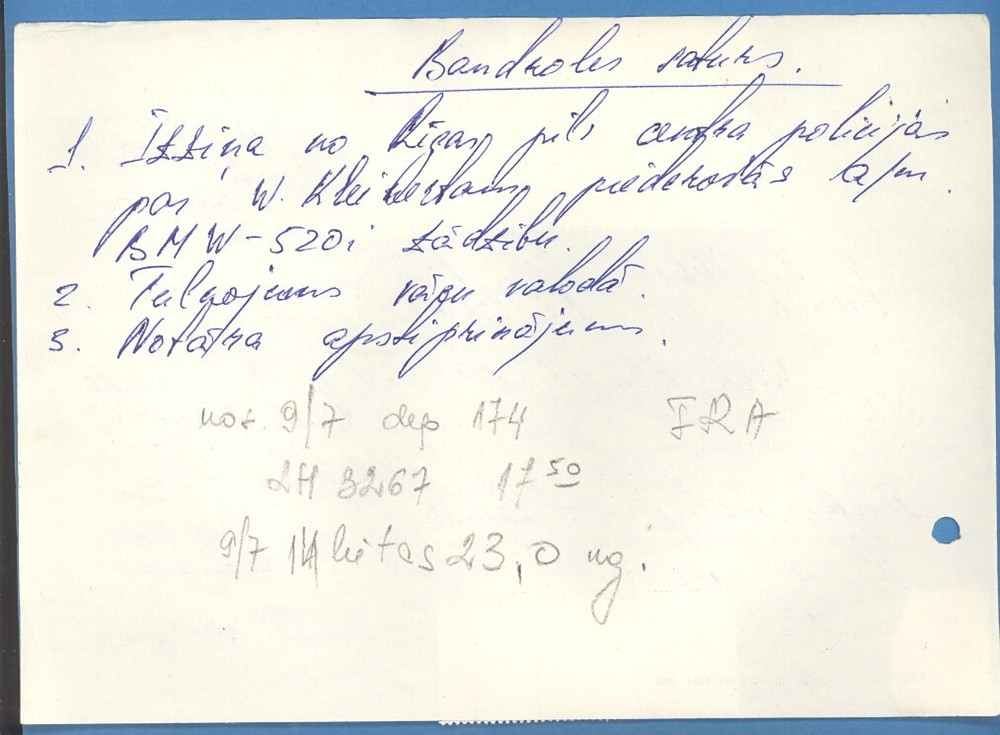 Bandroles saturs.
1. Izziņa no Rīgas pils centra policijas
par W. Kleinbertam piederošās a/m.
BMW-520i zādzību.
2. Tulkojums vāņu valodā.
3. Notāra apstiprinājums.
nos. 9/7 dep 174 FRA
LH 3267 17 50
9/7 14 lietas 23,0 ug.